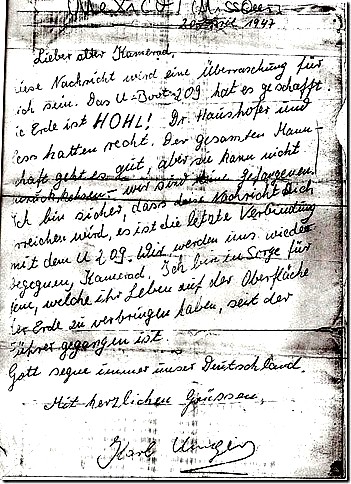 1947
Lieber alter Kamerad,
iese Nachricht wird eine Überraschung für
ich sein. Das U-Boot 209 hat es geschafft.
ie Erde ist HOHL! Dr. Haushofer und
ess hatten recht. Der gesamten Mann-
chaft geht es gut, aber sie kann nicht
wir sind keine Gefangenen.
Ich bin sicher, dass diese Nachricht Dich
rreichen wird, es ist die letzte Verbindung
mit dem U 209. Wir werden uns wieder
begegnen, Kamerad. Ich bin in Sorge für
jene, welche ihr Leben auf der Oberfläche
der Erde zu verbringen haben, seit der
Führer gegangen ist.
Gott segne immer unser Deutschland.
Mit herzlichen Grüssen,
Karl Unger